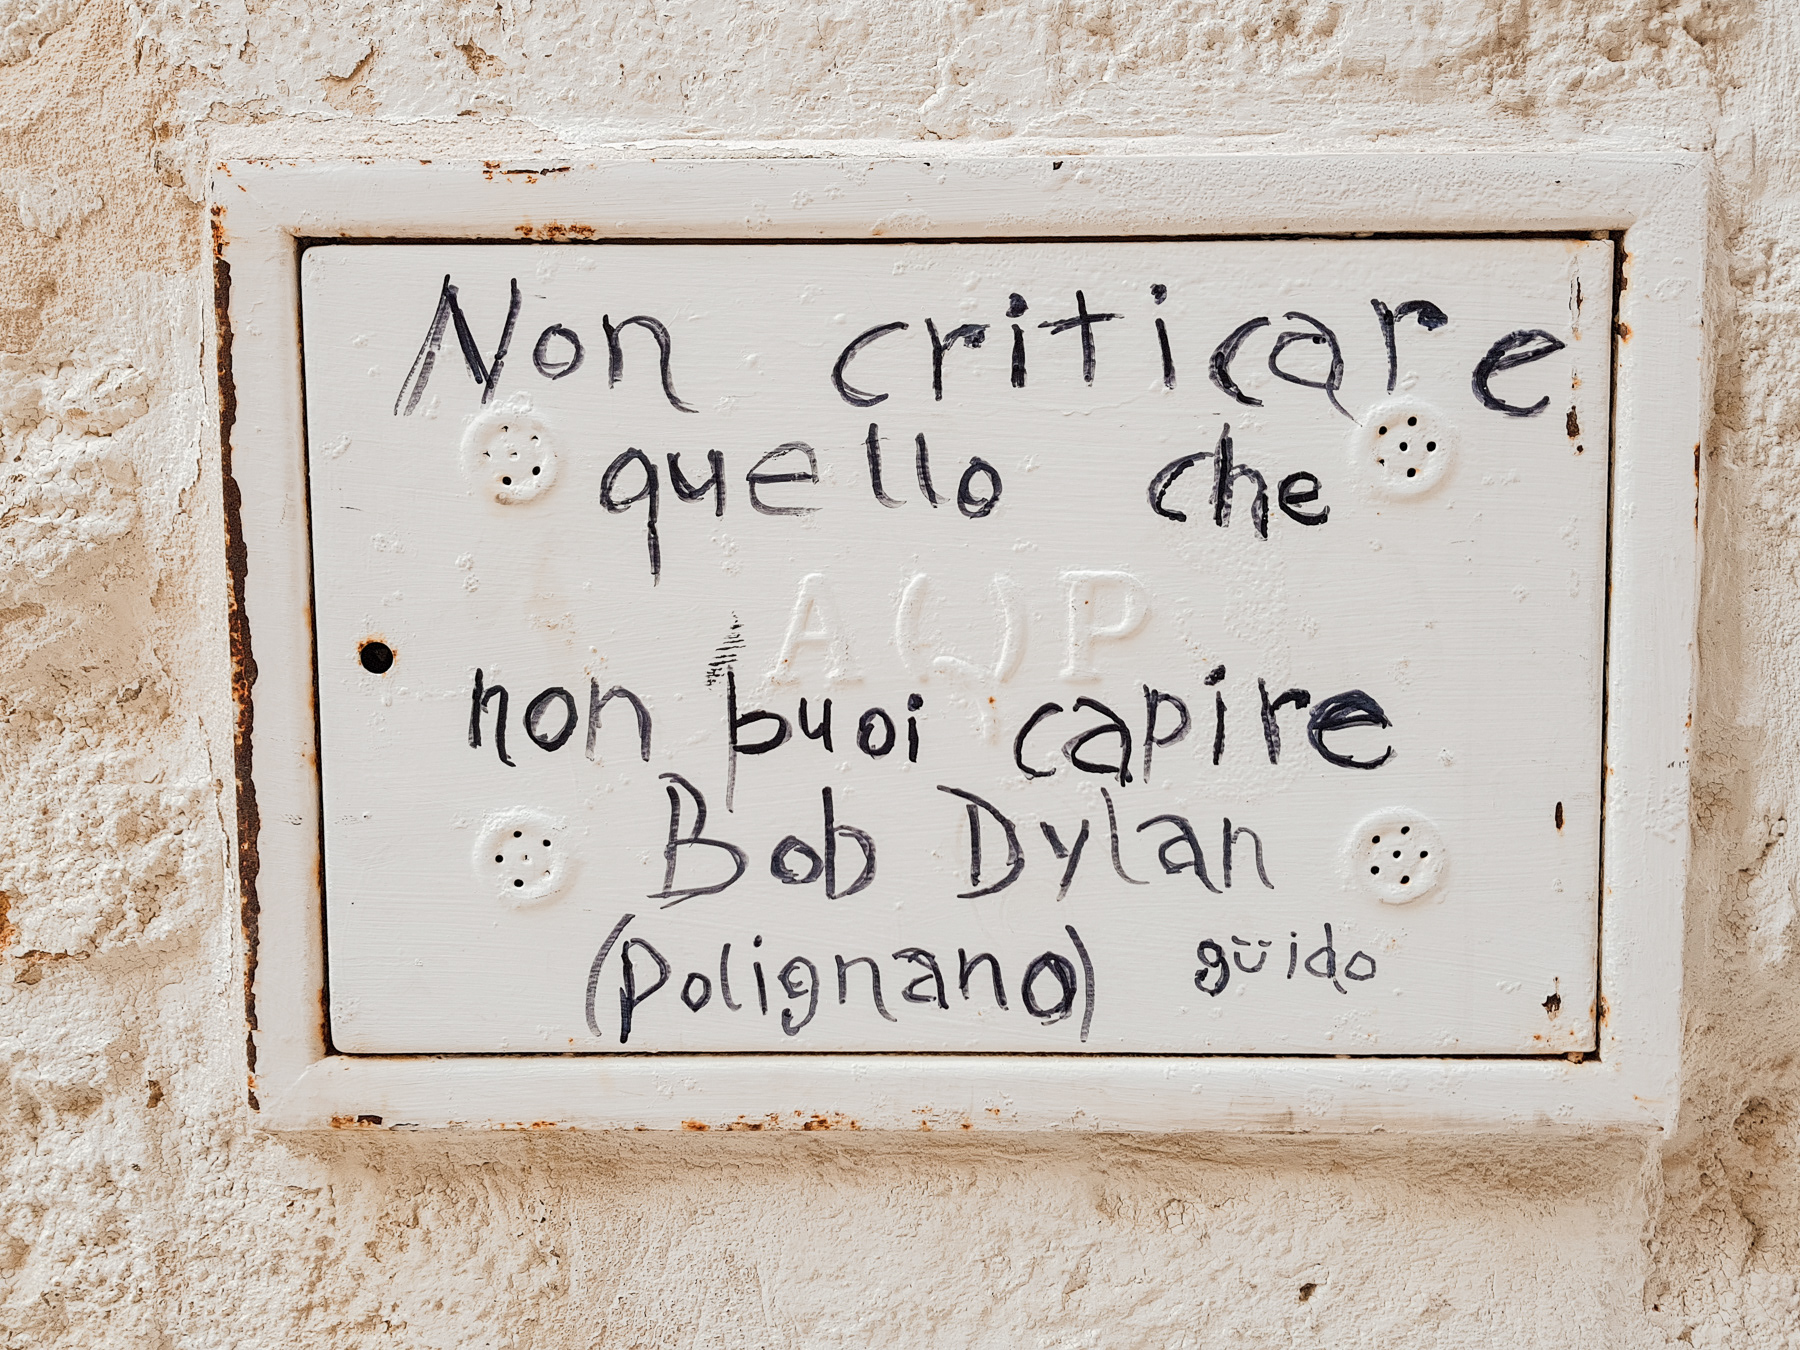 Non criticare
quello che
AQP
non puoi capire
Bob Dylan
(Polignano) güido